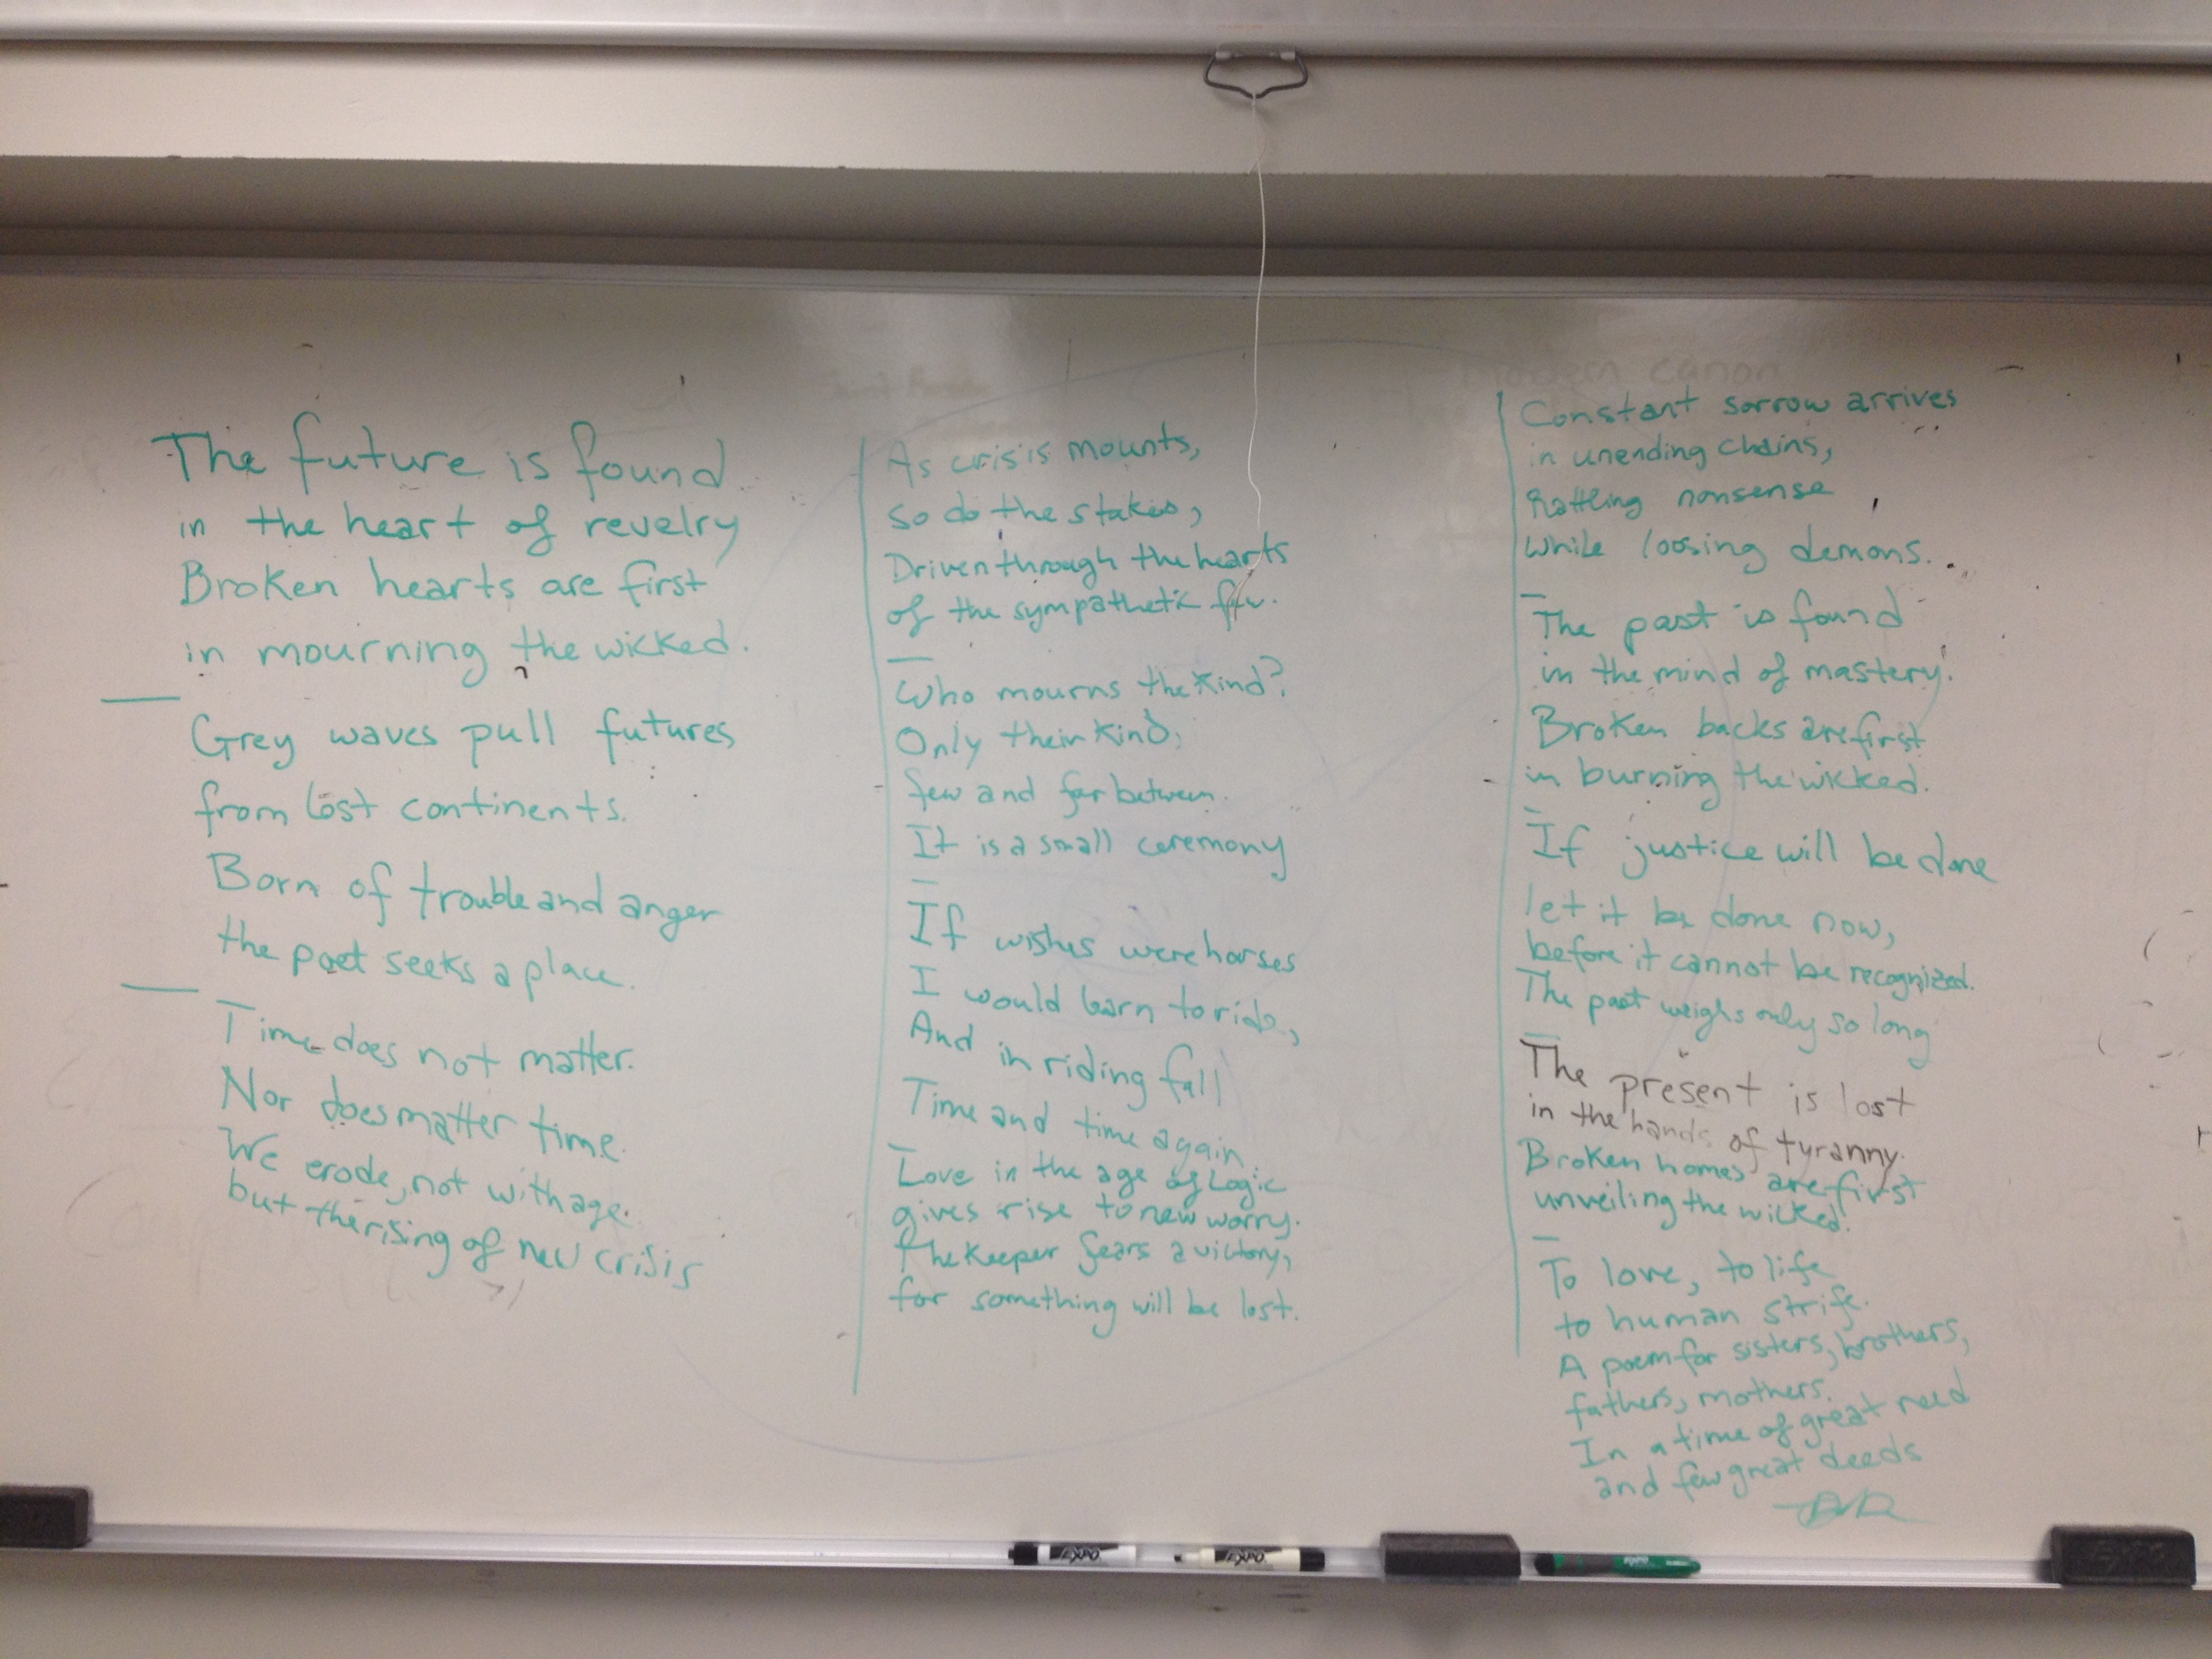 The future is found
in the heart of revelry
Broken hearts are first
in mourning the wicked.
Grey waves pull futures
from lost continents.
Born of trouble and anger
the past seeks a place.
Time does not matter.
Nor does matter time.
We erode, not with age.
but the rising of new crisis
As crisis mounts,
so do the stakes,
Driven through the hearts
of the sympathetic few.
Who mourns the kind?
Only their kind,
few and far between.
It is a small ceremony
If wishes were horses
I would learn to ride,
And in riding fall
Time and time again
Love in the age of Logic
gives rise to new worry.
The Keeper fears a victory,
for something will be lost.
Modern canon
Constant sorrow arrives
in unending chains,
Rattling nonsense
While loosing demons.
The past is found
in the mind of mastery.
Broken backs are first
in burning the wicked.
If justice will be done
let it be done now,
before it cannot be recognized.
The past weighs only so long
The present is lost
in the hands of tyranny.
Broken homes are first
unveiling the wicked.
To love, to life
to human strife.
A poem for sisters, brothers,
fathers, mothers.
In a time of great need
and few great deeds
EXPO
EXPO
EXPO